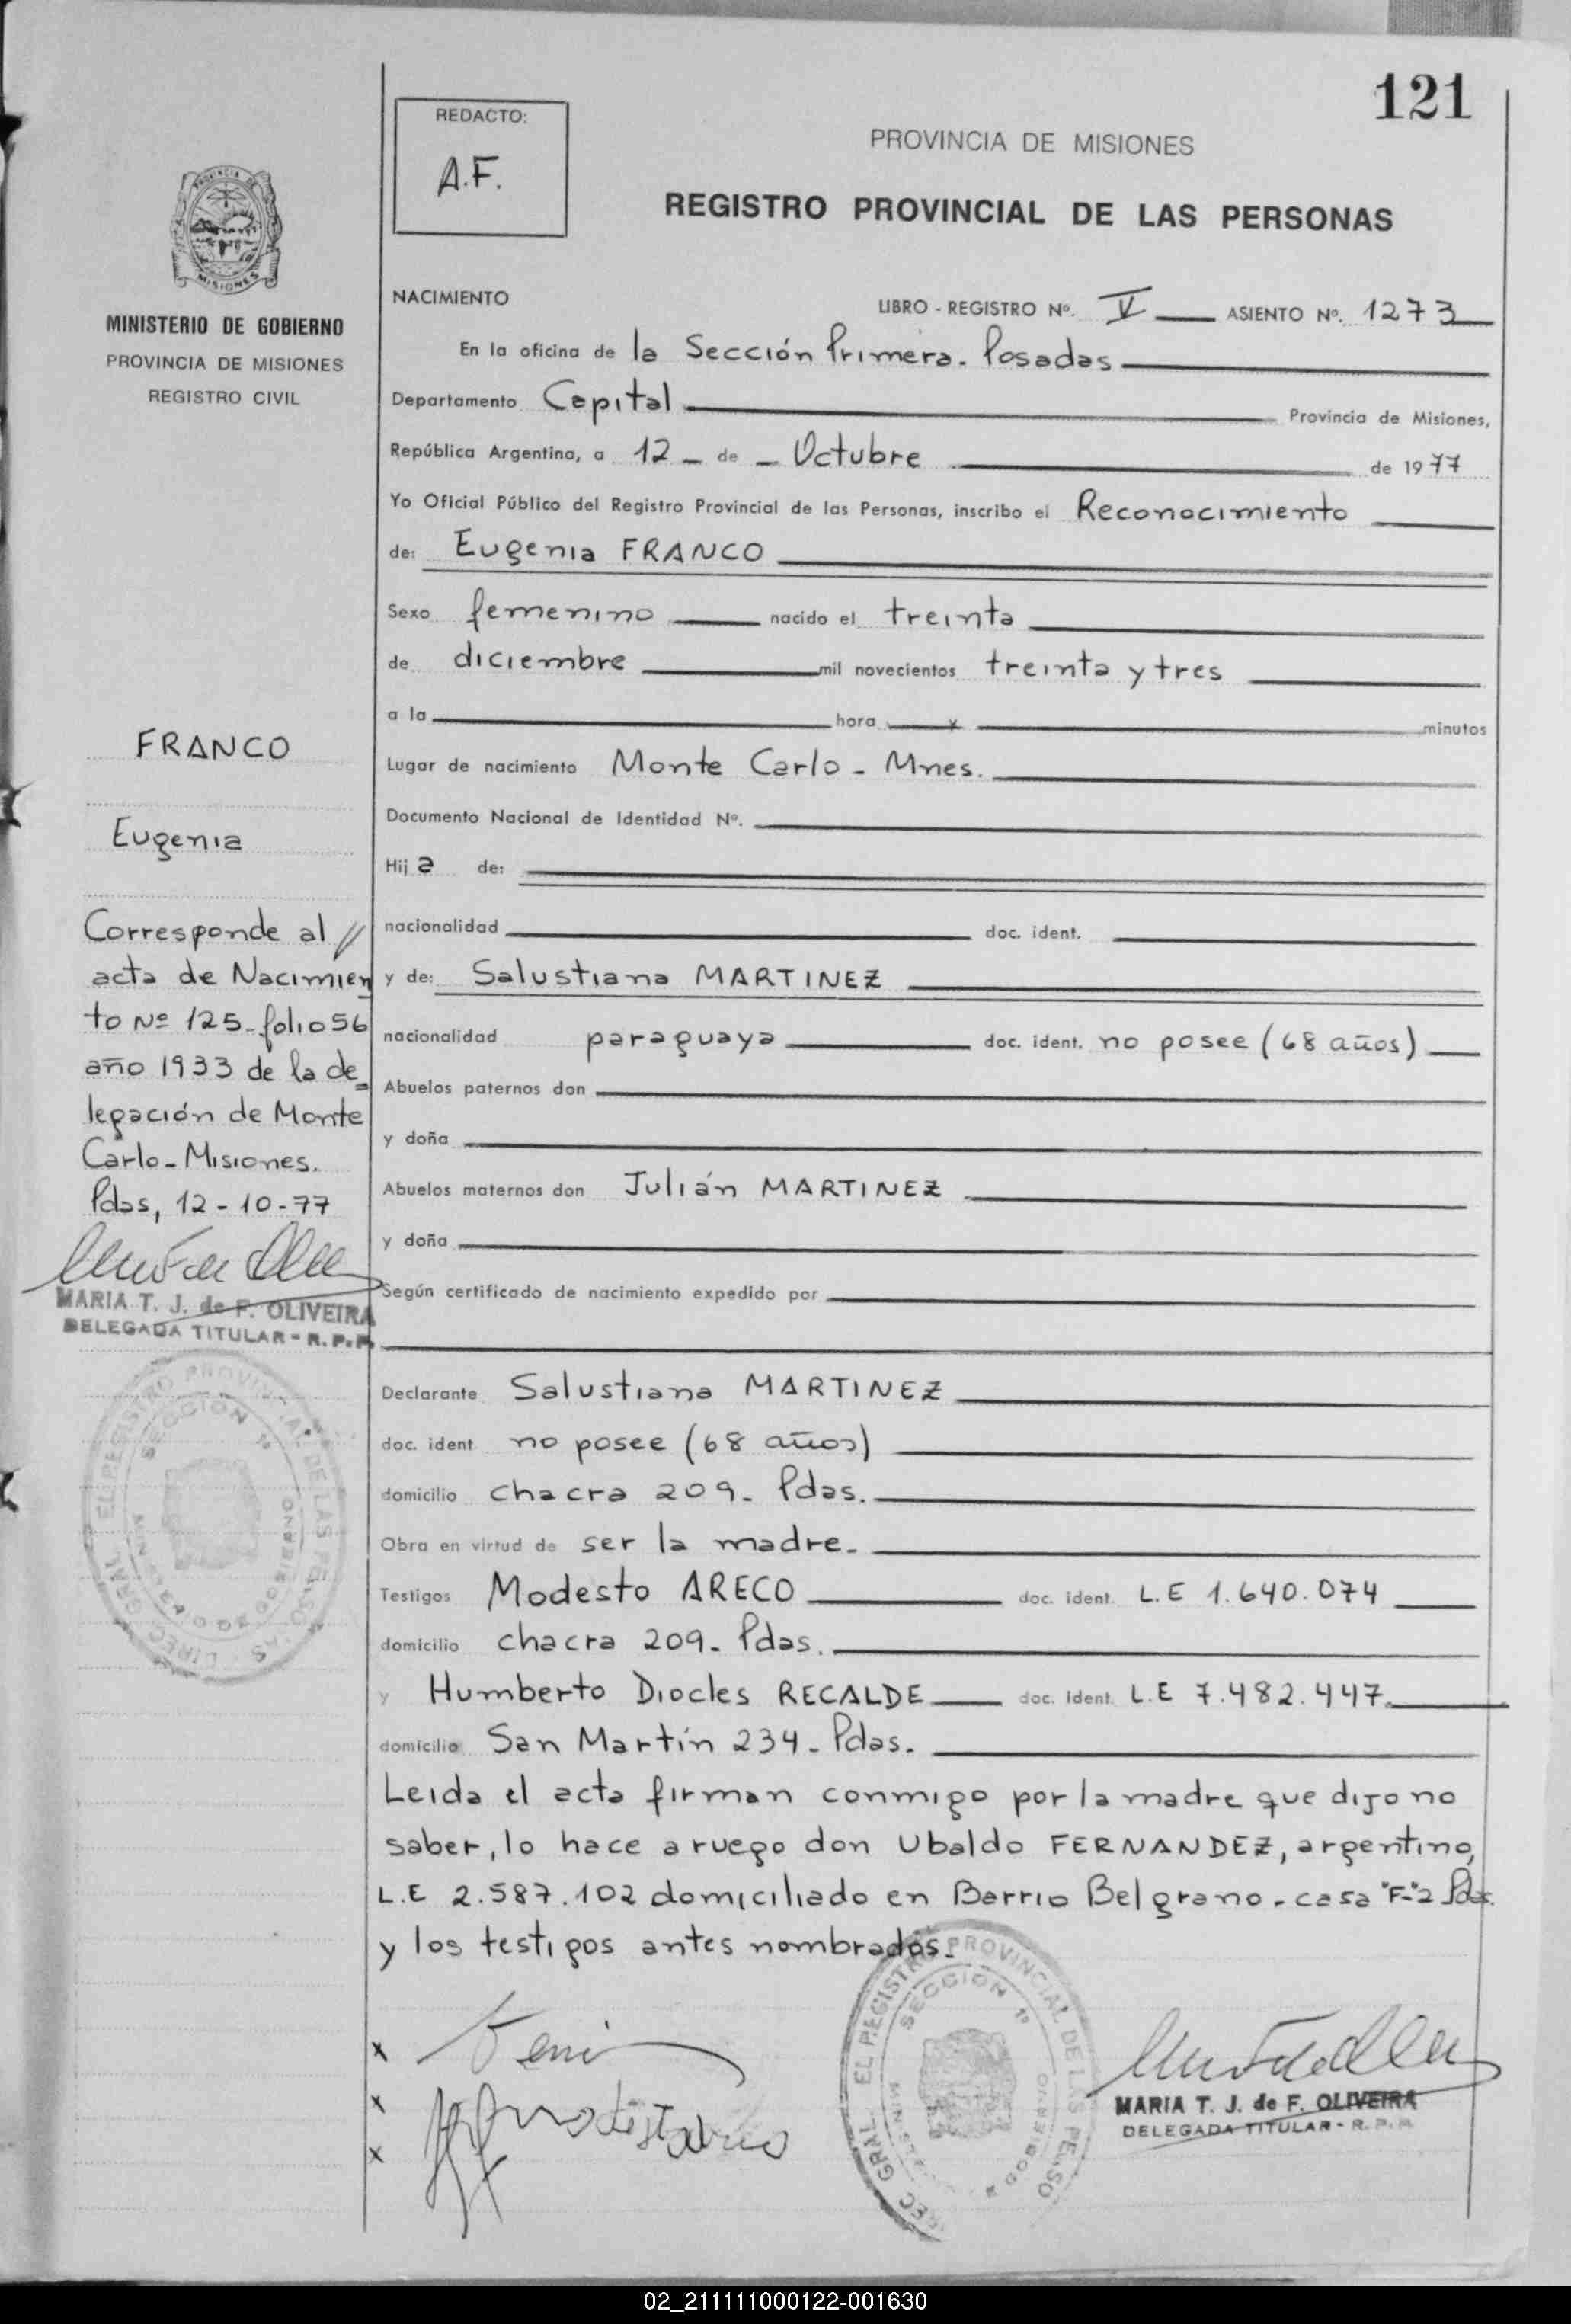 121
REDACTO:
A.F.
PROVINCIA DE MISIONES
REGISTRO PROVINCIAL DE LAS PERSONAS
MISIONES
MINISTERIO DE GOBIERNO
PROVINCIA DE MISIONES
REGISTRO CIVIL
NACIMIENTO
LIBRO - REGISTRO Nº. V ASIENTO Nº. 1273
En la oficina de la Sección Primera. Posadas
Departamento Capital Provincia de Misiones,
República Argentina, a 12 - de - Octubre de 1977
Yo Oficial Público del Registro Provincial de las Personas, inscribo el Reconocimiento
de: Eugenia FRANCO
Sexo femenino nacido el treinta
de diciembre mil novecientos treinta y tres
a la hora y minutos
Lugar de nacimiento Monte Carlo - Mnes.
Documento Nacional de Identidad Nº.
Hij a de:
nacionalidad doc. ident.
y de: Salustiana MARTINEZ
nacionalidad paraguaya doc. ident. no posee (68 años)
Abuelos paternos don
y doña
Abuelos maternos don Julián MARTINEZ
y doña
Según certificado de nacimiento expedido por
Declarante Salustiana MARTINEZ
doc. ident no posee (68 años)
domicilio chacra 209. Pdas.
Obra en virtud de ser la madre.
Testigos Modesto ARECO doc. ident. L.E 1.640.074
domicilio chacra 209. Pdas.
y Humberto Diocles RECALDE doc. ident. L.E 7.482.447.
domicilio San Martín 234. Pdas.
Leida el acta firman conmigo por la madre que dijo no
saber, lo hace a ruego don Ubaldo FERNANDEZ, argentino,
L.E 2.587.102 domiciliado en Barrio Belgrano - casa "F-"2 Pdas.
y los testigos antes nombrados.
FRANCO
Eugenia
Corresponde al //
acta de Nacimien
to Nº 125 - folio 56
año 1933 de la de
legación de Monte
Carlo - Misiones.
Pdas, 12 - 10 - 77
MARIA T. J. de F. OLIVEIRA
DELEGADA TITULAR - R.P.P.
DIREC GRAL EL REGISTRO PROVINCIAL DE LAS PERSONAS
SECCION 1ª
MINISTERIO DE GOBIERNO
x
x
x
DIREC GRAL EL REGISTRO PROVINCIAL DE LAS PERSO
SECCION 1ª
GOBIERNO
MARIA T. J. de F. OLIVEIRA
DELEGADA TITULAR - R.P.P.
02_211111000122-001630